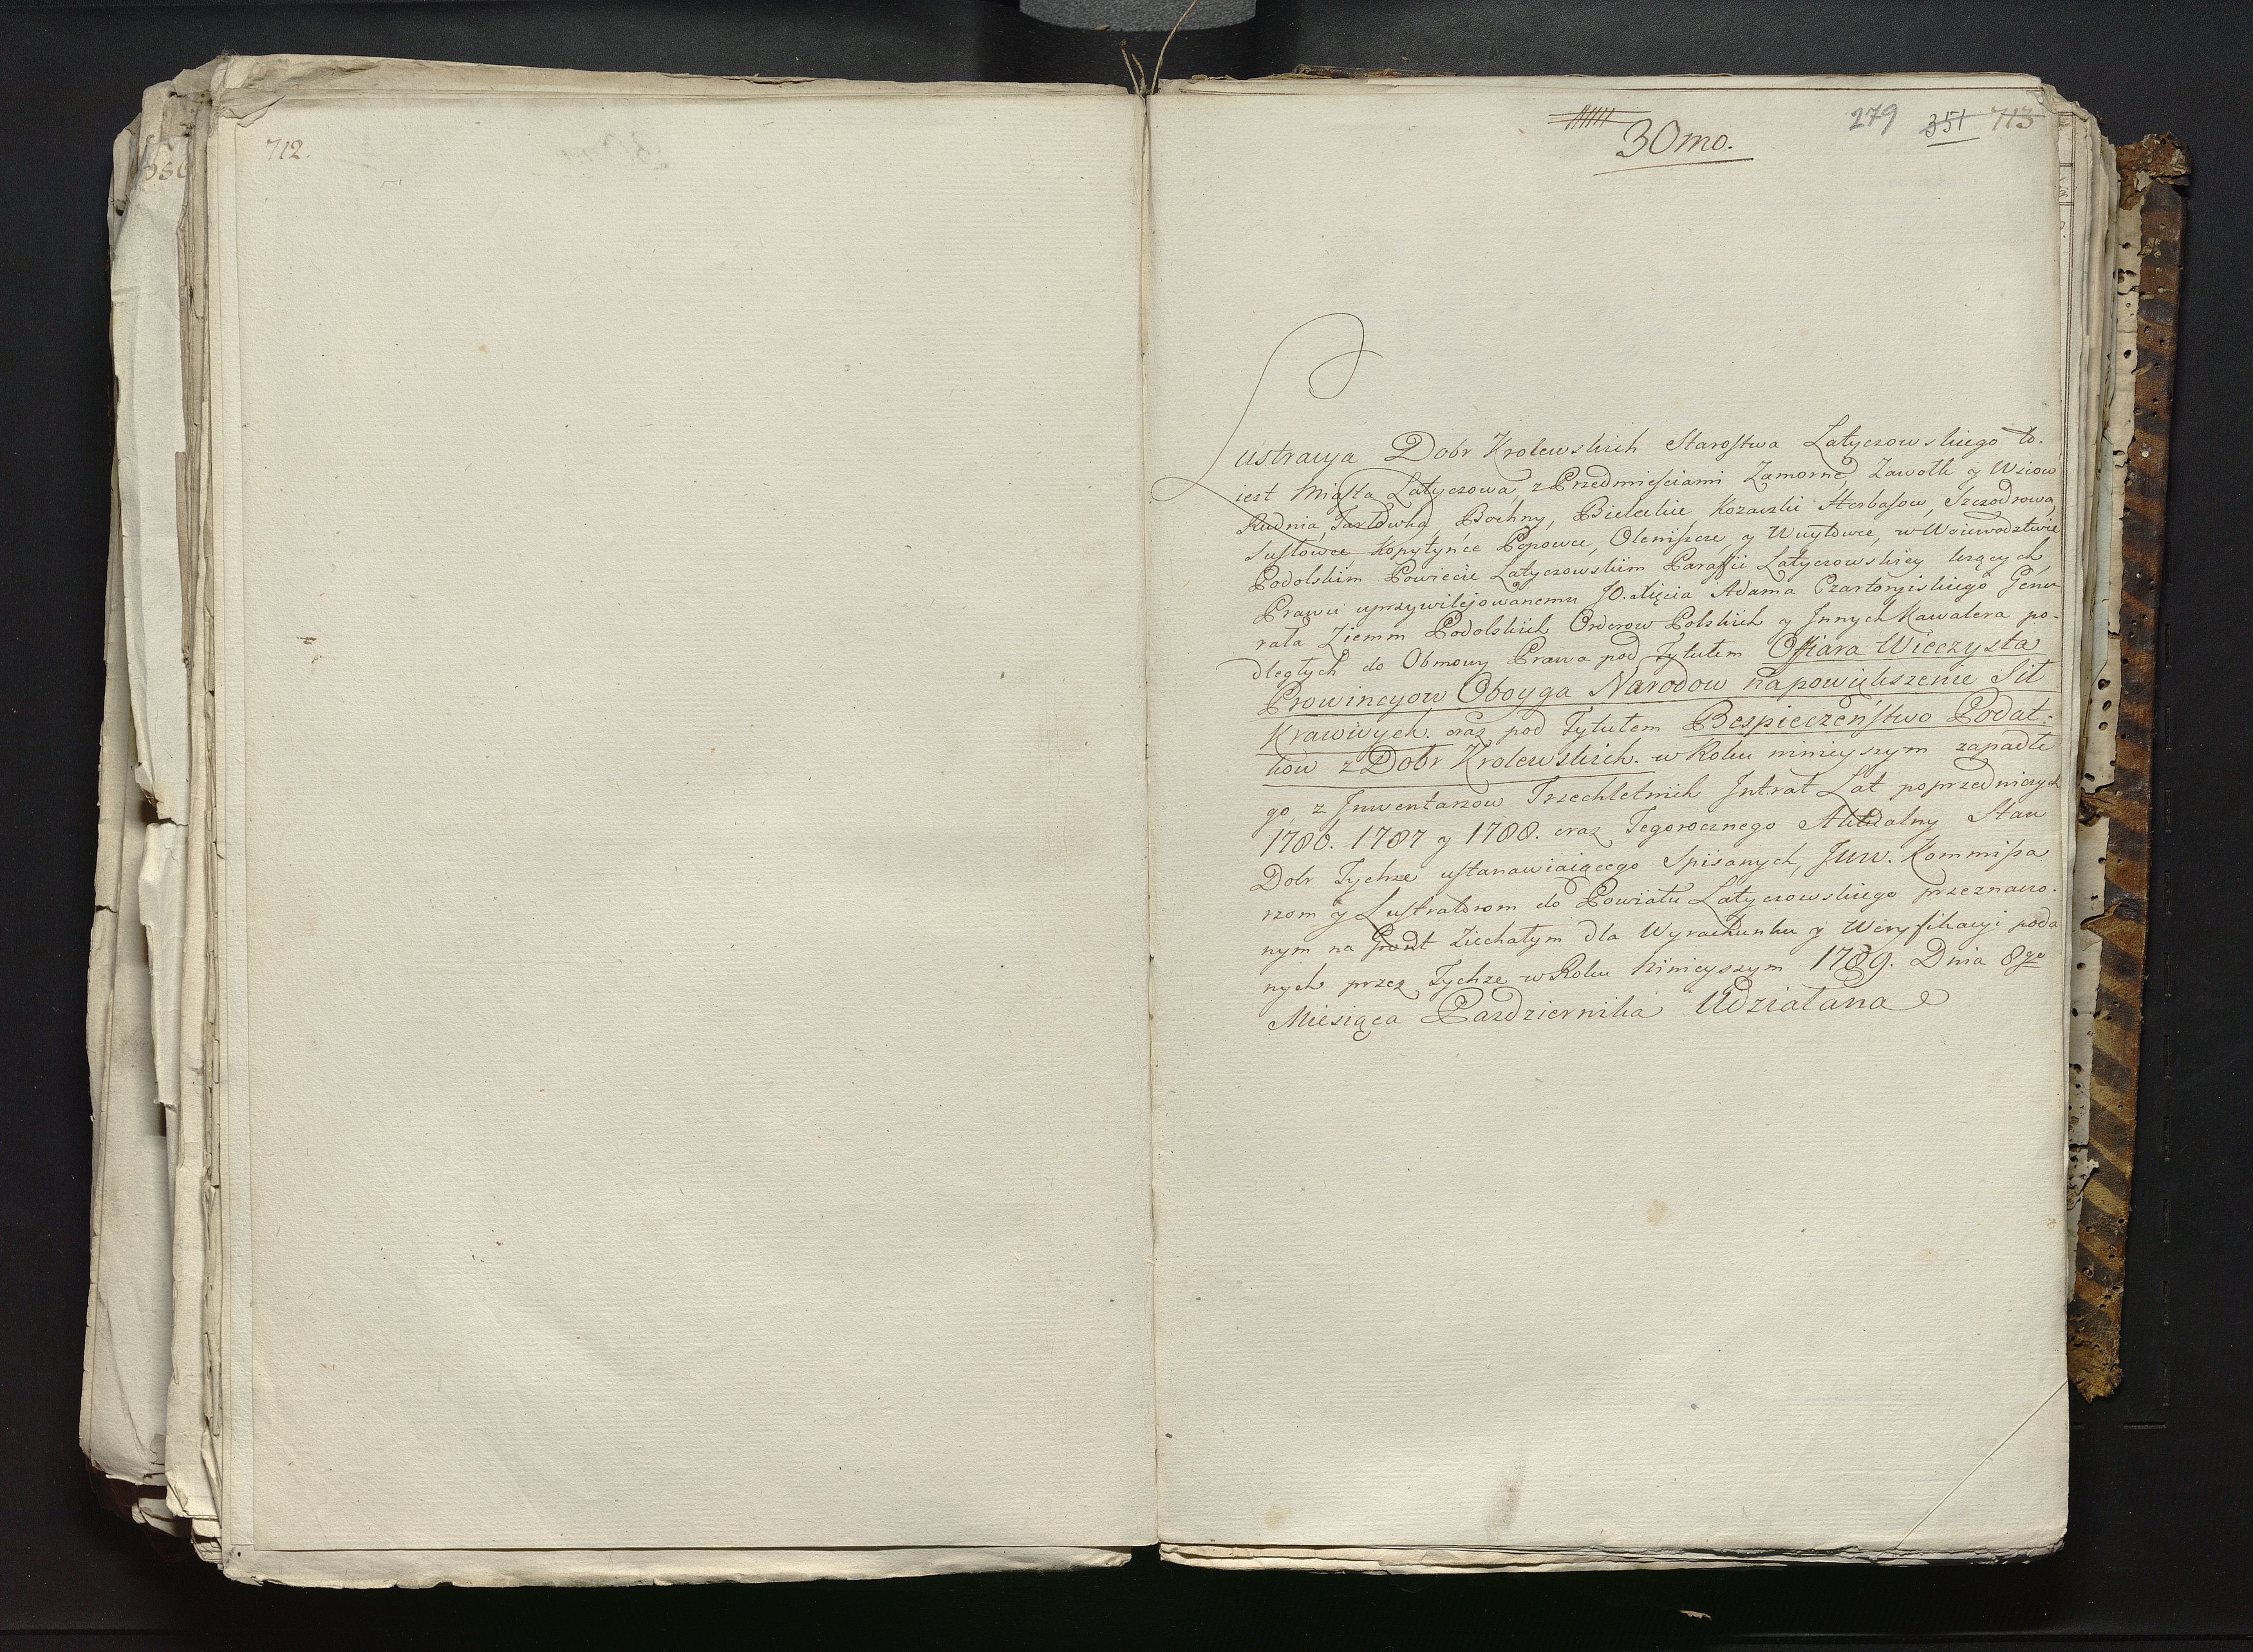 712.
30mo.
279 351 713
Lustracya Dobr Krolewskich Starostwa Latyczowskiego to
iest Miasta Latyczowa, z Przedmieściami Zamorne, Zawołk y Wsiow
Rudnia, Bochny, Bieleckie Kozaczki Herbasow, Szczodrowa,
Susłowce Kopytyńce Popowce, Oleniszcze, y Wuytowce, w Woiewodztwie
Podolskim Powiecie Latyczowskim Parafii Latyczowskiey leżących
Prawu uprzywilejowanemu JO. Xięcia Adama Czartoryiskiego Gene
rała Ziemm Podolskich Orderow Polskich y Jnnych Kawalera po-
dległych do Obmowy Prawa pod Tytułem Offiara Wieczysta
Prowincyow Oboyga Narodow na powiększenie Sił
Kraiowych. oraz pod Tytułem Bespieczeństwo Podat-
kow z Dobr Krolewskich. w Roku ninieyszym zapadłe
go, z Jnwentarzow Trzechletnich Jntrat Lat poprzedniczych
1786. 1787 y 1788. oraz Tegorocznego Aktualny Stan
Dobr Tychże ustanawiaiącego Spisanych, Jww. Kommissa
rzom y Lustratorom do Powiatu Latyczowskiego przeznaczo-
nym na Gront Ziechałym dla Wyrachunku y Weryfikacyi poda
nych przez Tychże w Roku Ninieyszym 1789. Dnia 8go
Miesiąca Pazdziernika Udziałana